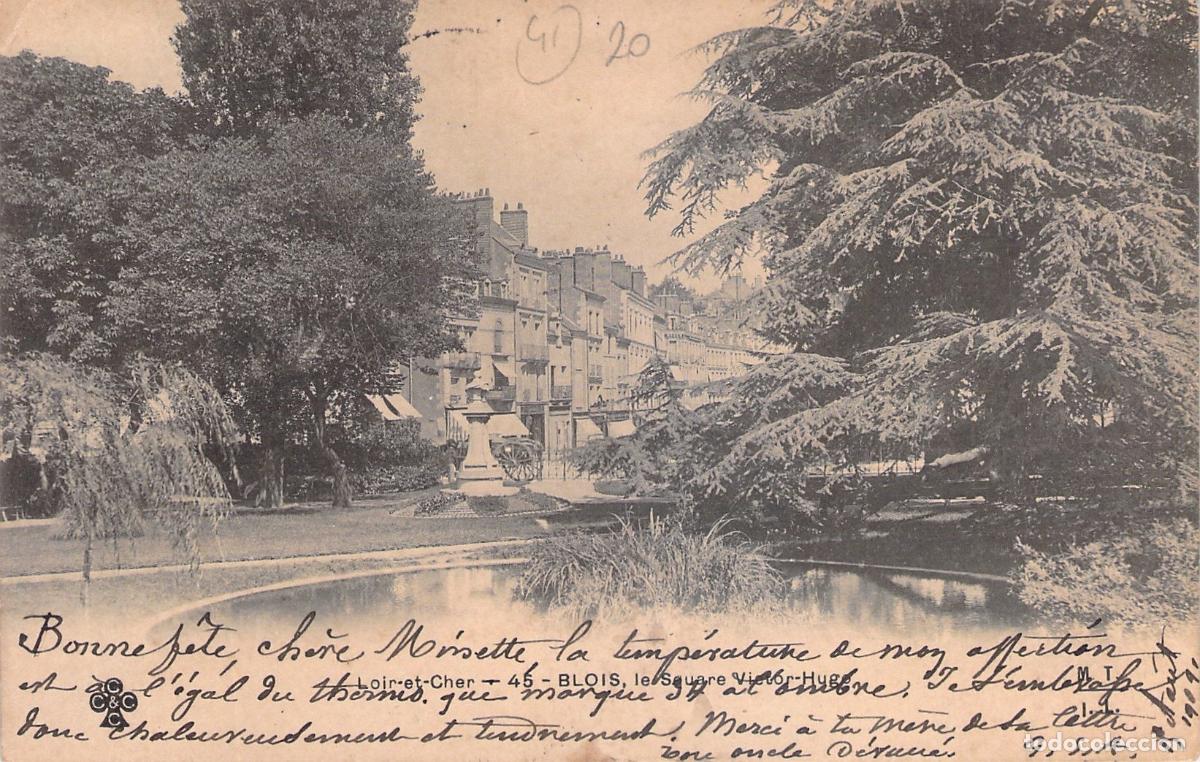 41 20
Bonne fête chère Minette la température de mon affection
Loir-et-Cher - 45 - BLOIS, le Square Victor-Hugo
M. T.
I. L.
C C & C C
est à l'égal du thermo. que marque 34 at ombre. Je t'embrasse
donc chaleureusement et tendrement. Merci à ta mère de sa lettre
ton oncle Dévoué
todocoleccion